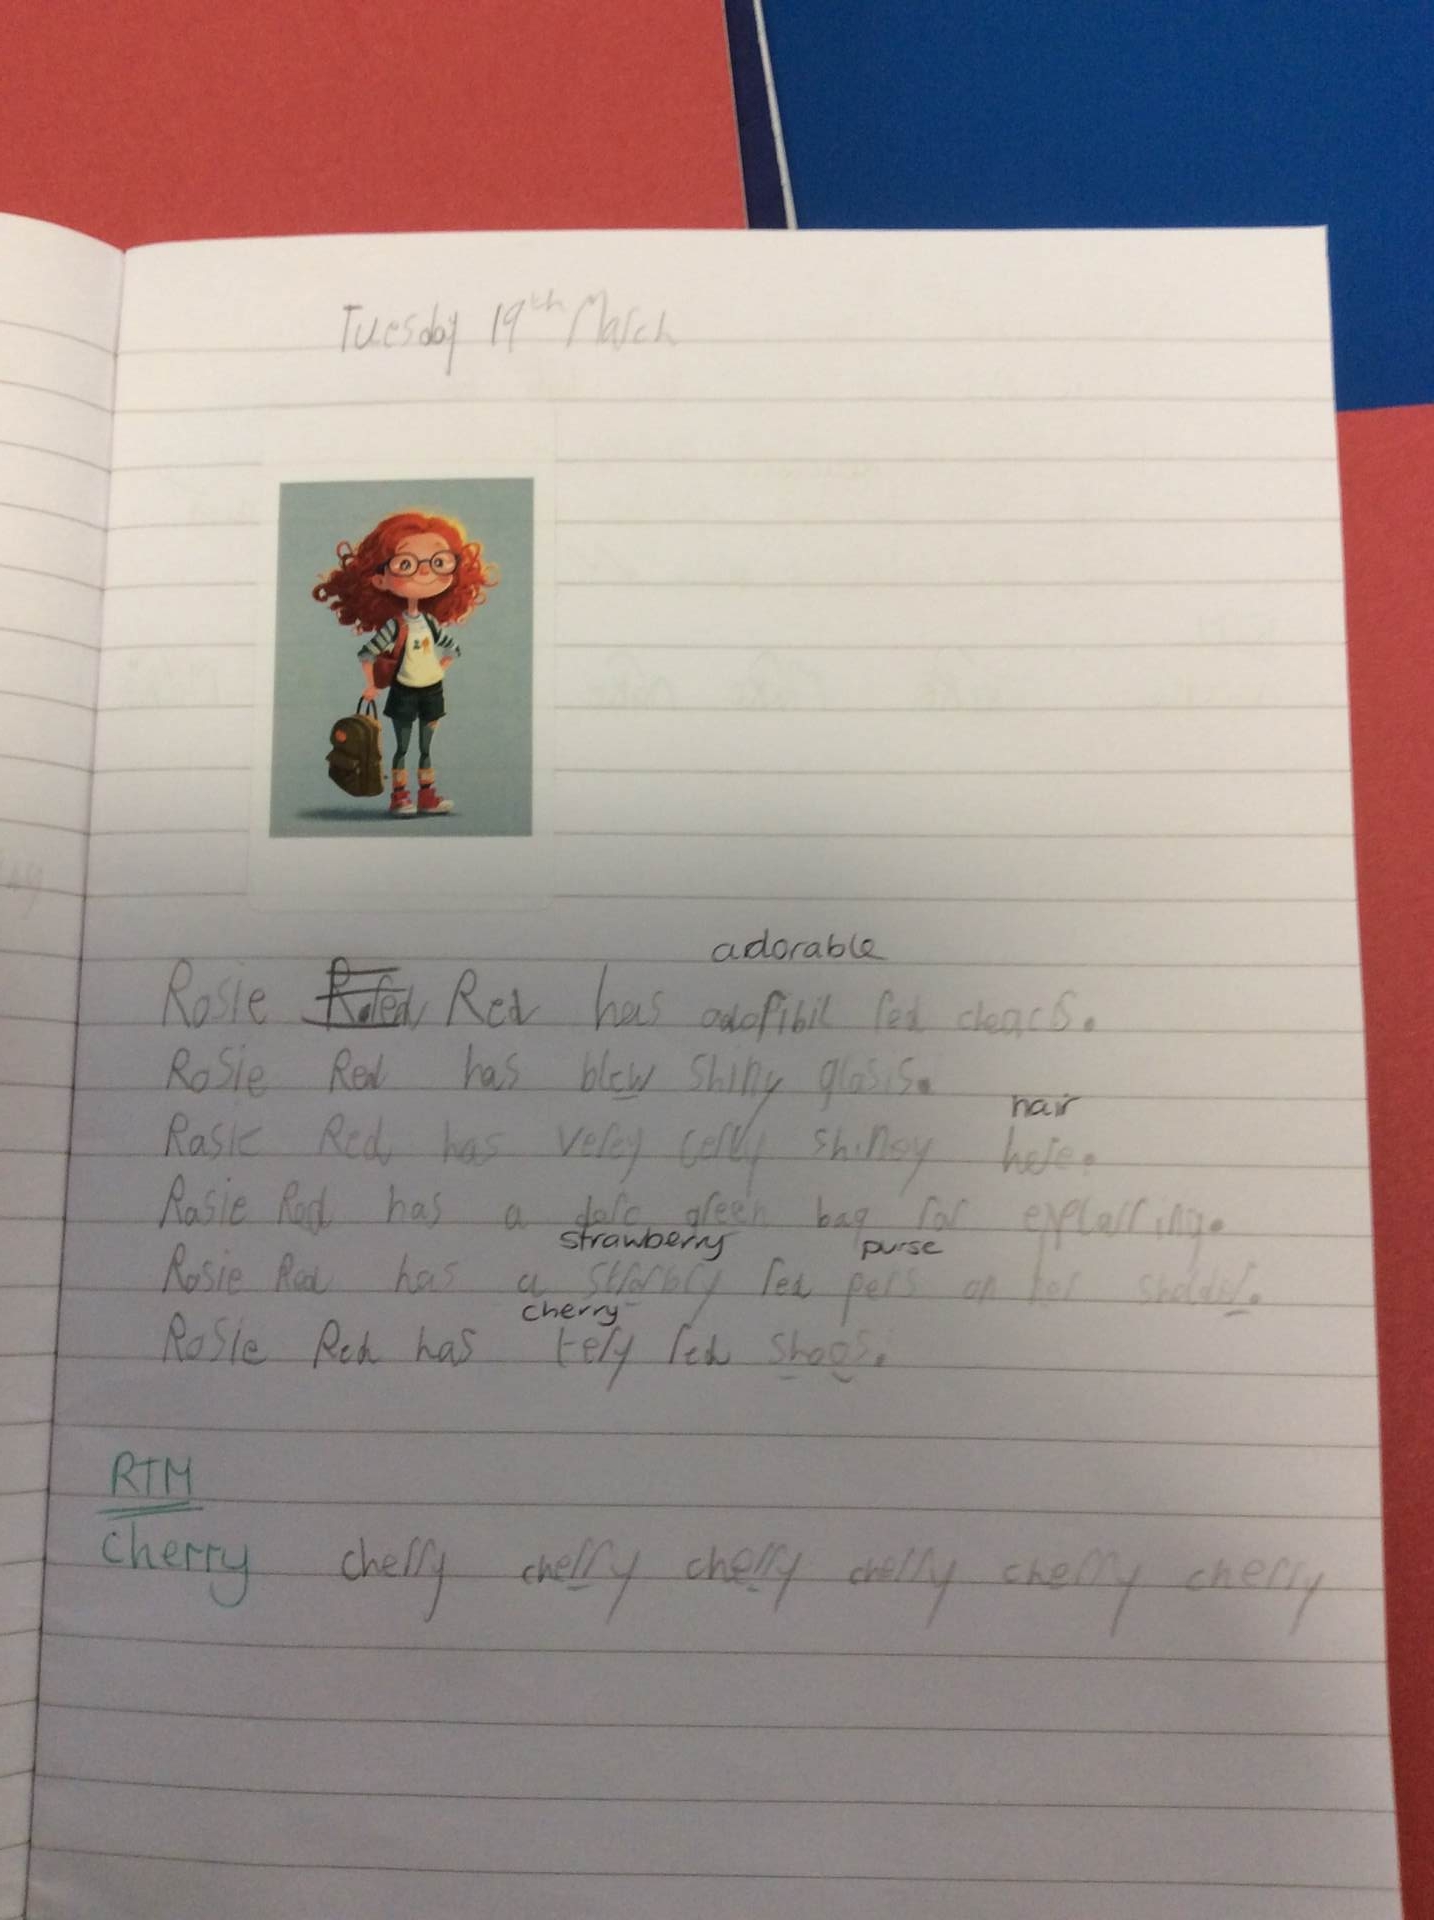 Tuesday 19th March
adorable
Rosie Red has adoribil red cheacs.
Rosie Red has blew shiny glasis.
hair
Rasie Red has verey cerly shinsy here.
Rasie Red has a darc green bag for explarring.
strawberry purse
Rosie Red has a strarbry red pers on her sholdir.
cherry
Rosie Red has tery red shoos.
RTM
cherry cherry cherry cherry cherry cherry cherry